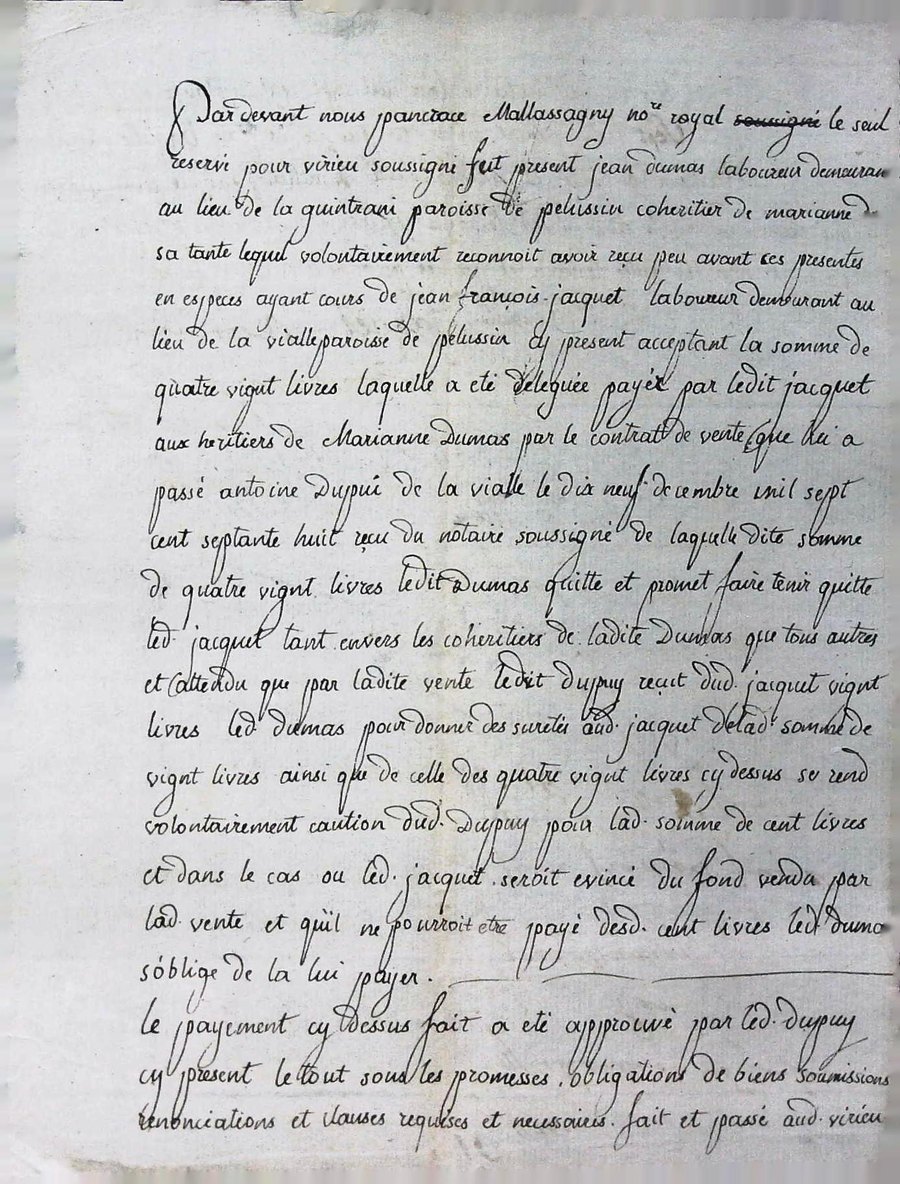 Par devant nous pancrace Mallassagny no.re royal soussigné le seul
reservé pour virieu soussigné fut present jean dumas laboureur demeuran
au lieu de la guintrani paroisse de pelussin coheritier de marianne d.
sa tante lequel volontairement reconnoit avoir reçu peu avant ces presentes
en especes ayant cours de jean françois jacquet laboureur demourant au
lieu de la vialle paroisse de pelussin cy present acceptant la somme de
quatre vignt livres laquelle a eté deleguée payér par ledit jacquet
aux heritiers de Marianne Dumas par le contratt de vente que lui a
passé antoine Dupui de la vialle le dix neuf decembre mil sept
cent septante huit reçu du notaire soussigné de laquelle dite somme
de quatre vignt livres ledit Dumas quitte et promet faire tenir quitte
led. jacquet tant envers les coheritiers de ladite Dumas que tous autres
et attendu que par ladite vente ledit dupuy reçut dud. jacquet vignt
livres led. dumas pour donner des suretés aud. jacquet delad. somme de
vignt livres ainsi que de celle des quatre vignt livres cy dessus se rend
volontairement caution dud. Dupuy pour lad. somme de cent livres
et dans le cas ou led. jacquet seroit evincé du fond vendu par
lad. vente et qu'il ne pourroit etre payé desd. cent livres led. duma
s'oblige de la lui payer.
le payement cy dessus fait a eté approuvé par led. dupuy
cy present le tout sous les promesses, obligations de biens soumissions
renonciations et clauses requises et necessaires. fait et passé aud. virieu